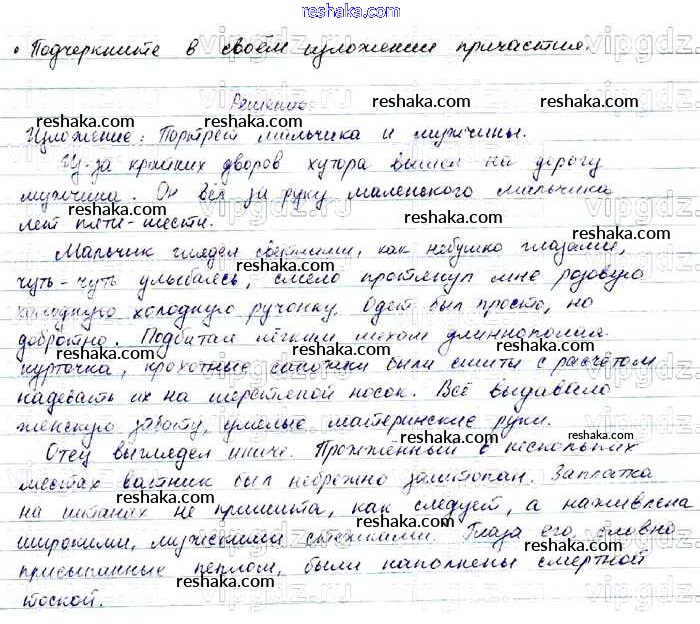 reshaka.com
• Подчеркните в своём изложении причастия.
Решение:
Изложение: Портрет мальчика и мужчины.
Из-за крайних дворов хутора вышел на дорогу
мужчина. Он вёл за руку маленького мальчика
лет пяти-шести.
Мальчик глядел светлыми, как небушко глазами,
чуть-чуть улыбаясь, смело протянул мне розовую
холодную холодную ручонку. Одет был просто, но
добротно. Подбитая лёгким мехом длиннополая
курточка, крохотные сапожки были сшиты с расчётом
надевать их на шерстяной носок. Всё выдавало
женскую заботу, умелые материнские руки.
Отец выглядел иначе. Прожженный в нескольких
местах ватник был небрежно заштопан. Заплатка
на штанах не пришита, как следует, а наживлена
широкими, мужскими стежками. Глаза его, словно
присыпанные пеплом, были наполнены смертной
тоской.